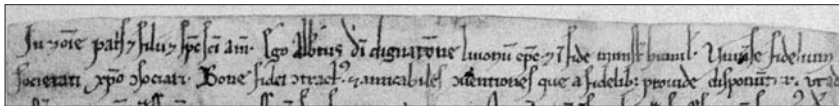 In noīe pat's ⁊ filii ⁊ sp̄s sc̄i am̄. Ego Alb'tus dī dignatione liuonū ep̄c ⁊ ī fide minist' humil'. Vniu'se fidelium
societati xp̄o ↄsociari. Bone fidei ↄtract' ⁊ amicabiles ↄuentiones que a fidelib; prouide disponūt'